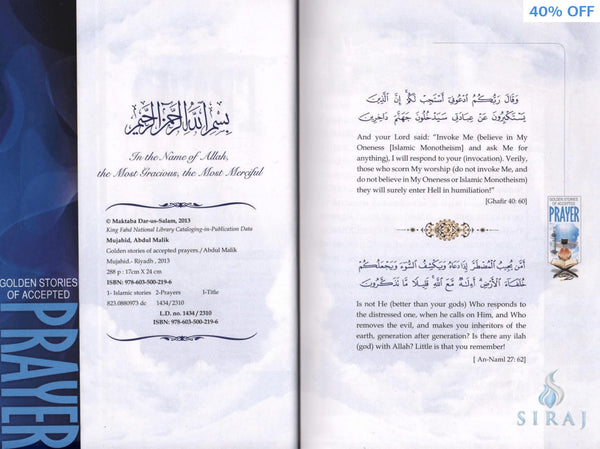 40% OFF
GOLDEN STORIES
OF ACCEPTED
PRAYER
بسم الله الرحمن الرحيم
In the Name of Allah,
the Most Gracious, the Most Merciful
© Maktaba Dar-us-Salam, 2013
King Fahd National Library Cataloging-in-Publication Data
Mujahid, Abdul Malik
Golden stories of accepted prayers./ Abdul Malik
Mujahid - Riyadh , 2013
288 p : 17cm X 24 cm
ISBN: 978-603-500-219-6
1- Islamic stories 2-Prayers I-Title
823.0880973 dc 1434/2310
L.D. no. 1434 / 2310
ISBN: 978-603-500-219-6
وَقَالَ رَبُّكُمُ ادْعُونِي أَسْتَجِبْ لَكُمْ إِنَّ الَّذِينَ
يَسْتَكْبِرُونَ عَنْ عِبَادَتِي سَيَدْخُلُونَ جَهَنَّمَ دَاخِرِينَ
And your Lord said: "Invoke Me (believe in My
Oneness [Islamic Monotheism] and ask Me for
anything), I will respond to your (invocation). Verily,
those who scorn My worship (do not invoke Me, and
do not believe in My Oneness or Islamic Monotheism)
they will surely enter Hell in humiliation!"
[Ghafir 40: 60]
GOLDEN STORIES
OF ACCEPTED
PRAYER
أَمَّن يُجِيبُ الْمُضْطَرَّ إِذَا دَعَاهُ وَيَكْشِفُ السُّوءَ وَيَجْعَلُكُمْ
خُلَفَاءَ الْأَرْضِ أَإِلَٰهٌ مَّعَ اللَّهِ قَلِيلًا مَّا تَذَكَّرُونَ
Is not He (better than your gods) Who responds to
the distressed one, when he calls on Him, and Who
removes the evil, and makes you inheritors of the
earth, generation after generation? Is there any ilah
(god) with Allah? Little is that you remember!
[ An-Naml 27: 62]
SIRAJ